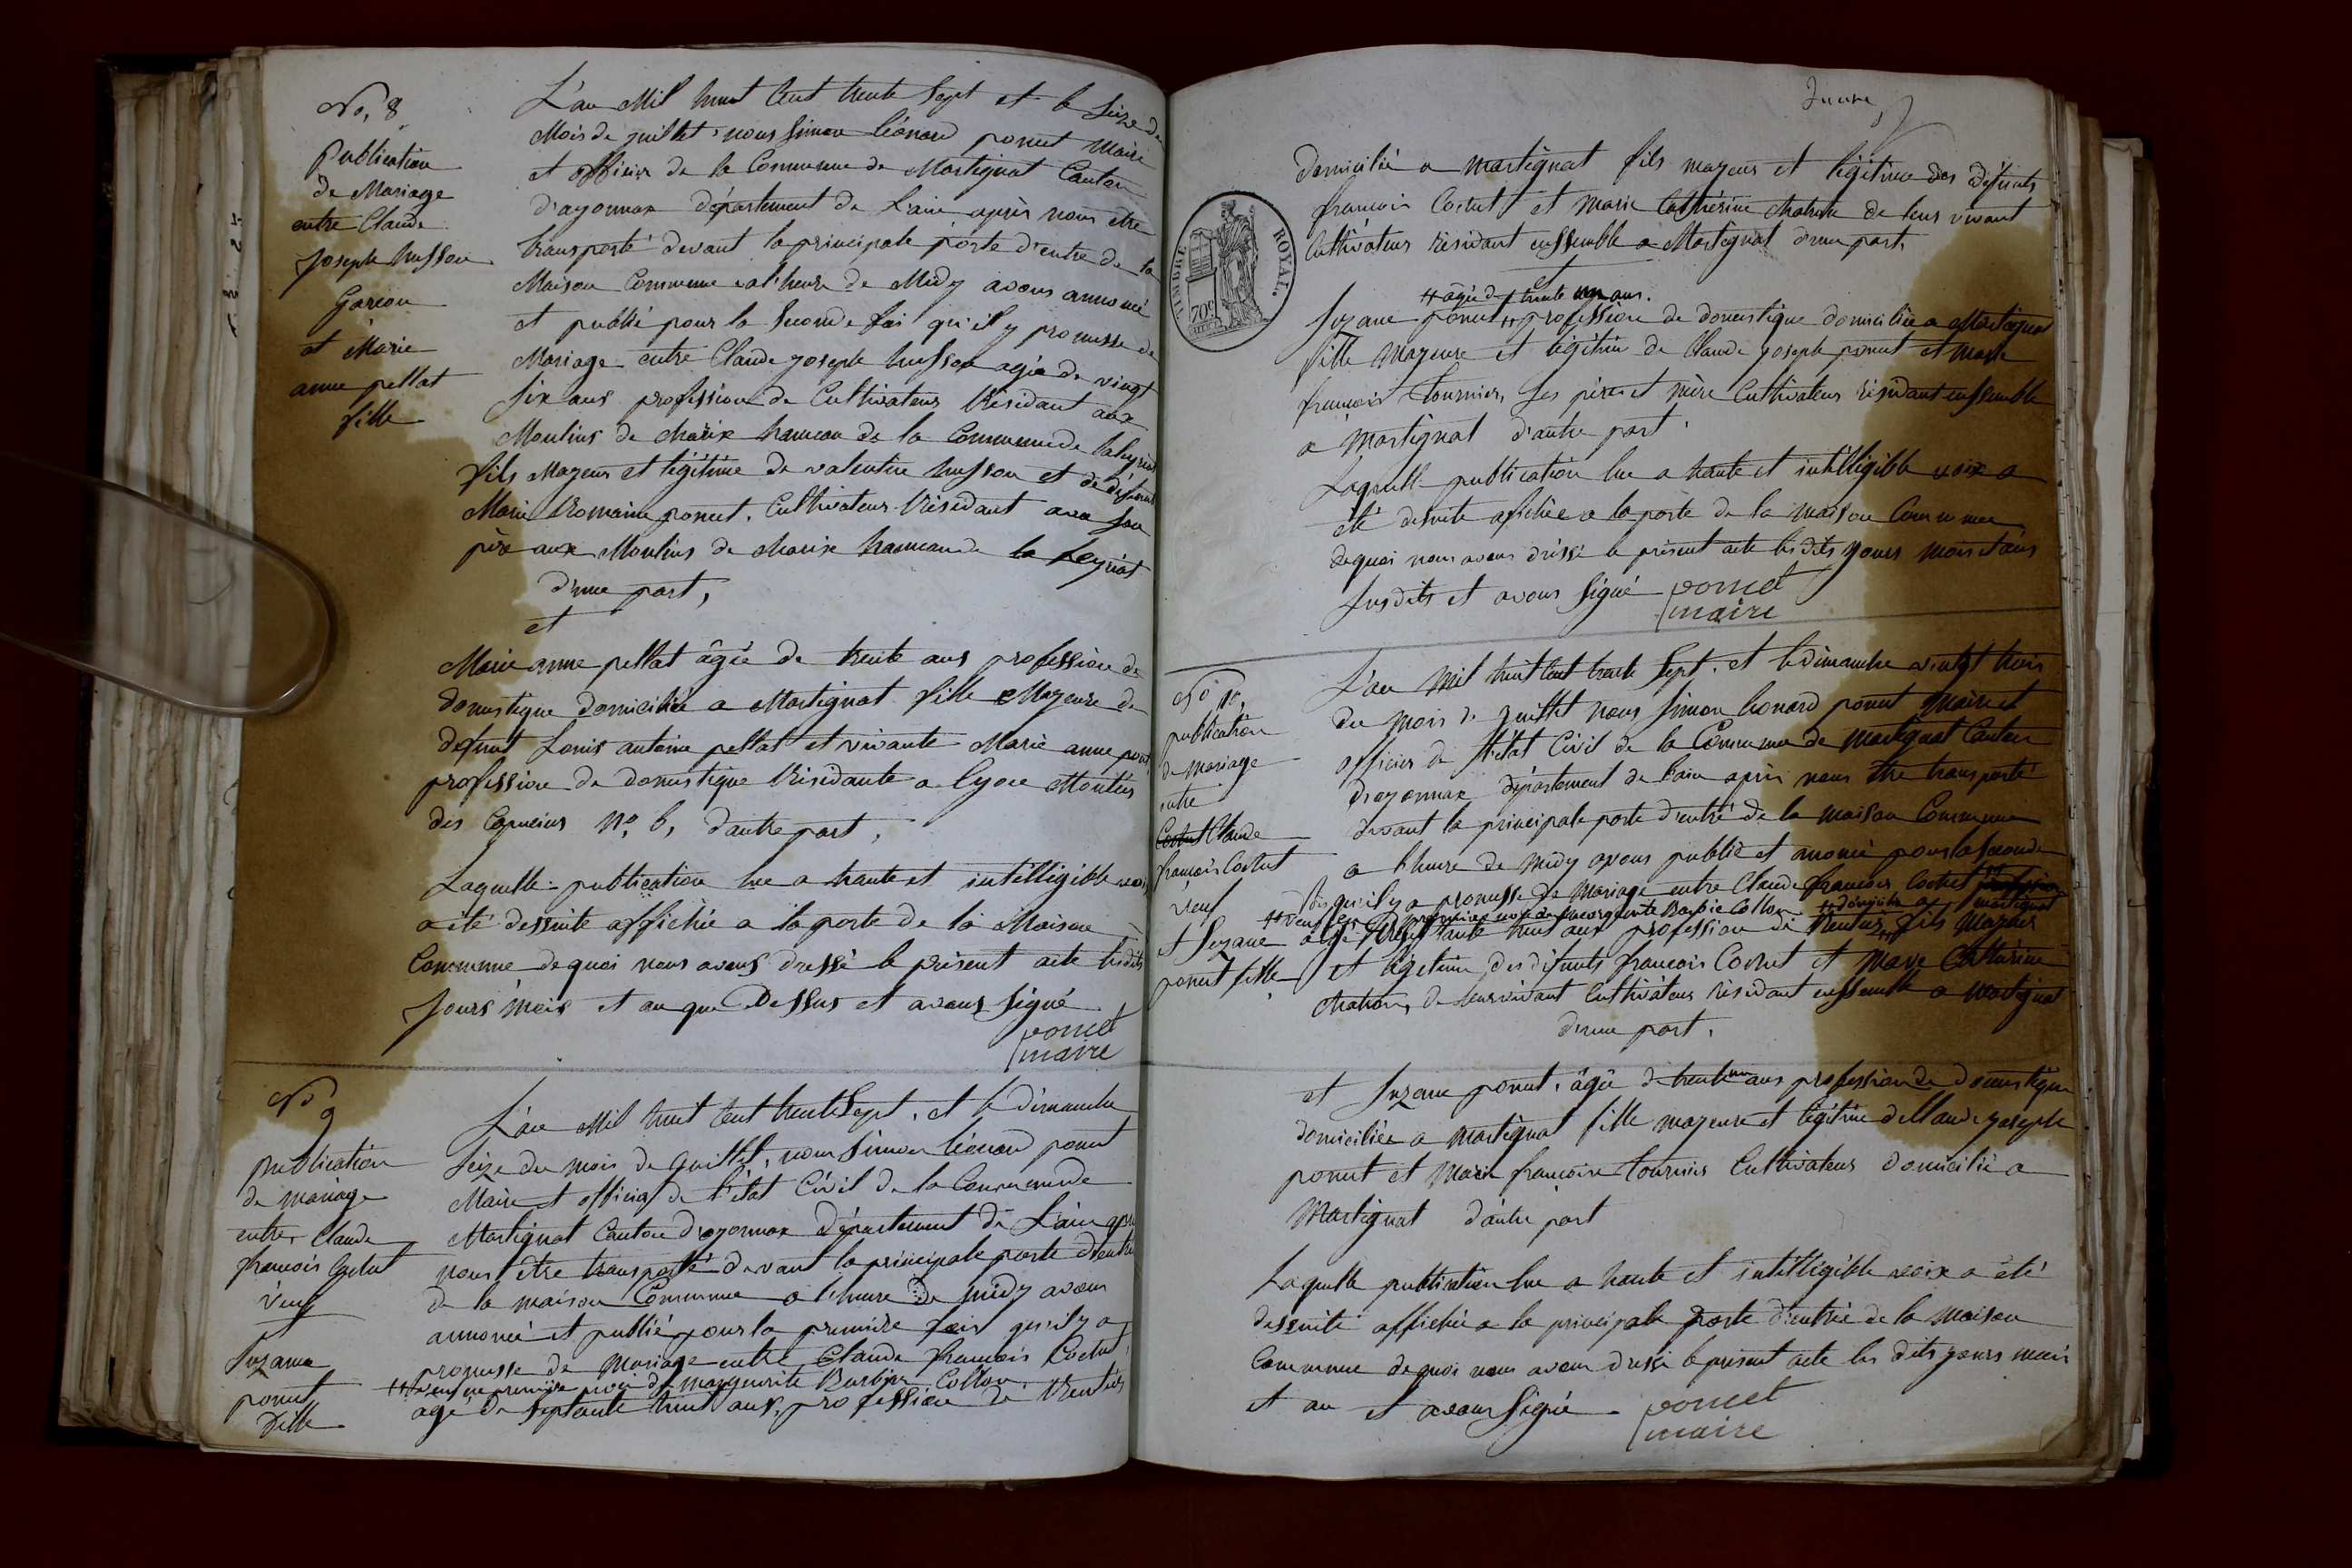 No. 8
Publication
de Mariage
entre Claude
Joseph husson
Garcon
et Marie
anne pellat
fille
L'an Mil huit Cent trente Sept et le Seize du
Mois de juillet, nous Simon léonard poncet Maire
et officier de la Commune de Martignat Canton
d'oyonnax département de L'ain après nous être
transporté devant la principale porte d'entre de la
Maison Commune a l'heure de Midy avons annoncé
et publié pour la Seconde fois qu'il y promesse de
Mariage entre Claude joseph husson agée de vingt
Six ans profession de Cultivateur Résidant aux
Moulins de charix hameau de la Commune de
fils Mayeur et légitime de valentin husson et de défunte
Marie Romaine poncet. Cultivateur Résidant avec son
père aux Moulins de charix hameau de la Leyriat
d'une part,
et
Marie anne pellat âgée de trente ans profession de
domestique domiciliée a Martignat fille Mayeure de
défunt Louis antoine pellat et vivante Marie anne
profession de domestique Résidante a lyon Montée
des Capucins No. 6, d'autre part,
Laquelle publication lue a haute et intélligible voix
a été dessuite affichée a la porte de la Maison
Commune de quoi nous avons dressé le présent acte lesdits
jours mois et an que Dessus et avons signé
poncet
maire
No 9
publication
de mariage
entre Claude
francois Cochet
Veuf
et
Suzanne
poncet
fille
L'an Mil huit Cent trente Sept. et le dimanche
Seize du mois de Juillet, nous Simon léonard poncet
Maire et officier de l'état Civil de la Commune de
Martignat Canton d'oyonnax Département de L'ain après
nous être transporté devant la principale porte d'entre
de la maison Commune a l'heure de midy avons
annoncé et publié pour la première fois qu'il y a
promesse de mariage entre Claude francois Cochet,
++ veuf en première noce de marguerite Barbe Collon
agé de septante huit ans, profession de Rentier
domicilié a martignat fils mayeur et légitime des défunts
francois Cochet et Marie Cathérine chatron de leur vivant
Cultivateur résidant enssemble a Martignat d'une part,
et
++ âgée de trente un ans.
Suzane poncet ++ profession de domestique domiciliée a Martignat
fille mayeure et légitime de Claude joseph poncet et marie
francoise tournier, ses père et mère Cultivateur résidant enssemble
a Martignat d'autre part.
Laquelle publication lue a haute et intélligible voix a
été desuite afichée a la porte de la maison Commune
de quoi nous avons dressé le présent acte lesdits jours mois et ans
susdits et avons signé poncet
maire
TIMBRE ROYAL.
70c
No 10,
publication
de mariage
entre
Cochet Claude
francois Cochet
Veuf
et Suzane
poncet fille
L'an mil huit Cent trente Sept. et le dimanche vingt trois
du mois de juillet nous Simon léonard poncet Maire et
officier de l'état Civil de la Commune de martignat Canton
d'oyonnax département de l'ain après nous être transporté
devant la principale porte d'entré de la maison Commune
a l'heure de midy avons publié et anoncé pour la seconde
fois qu'il y a promesse de mariage entre Claude francois Cochet
++ veuf en première noce de marguerite Barbe Collon ++ domicilié a martignat
agé de septante huit ans profession de Rentier ++ fils Mayeur
et légitime des défunts francois Cochet et Marie Cathérine
chatron, de leur vivant Cultivateur résidant enssemble a martignat
d'une part.
et Suzane poncet. âgée de trente un ans profession de domestique
domiciliée a Martignat fille mayeure et légitime de Claude joseph
poncet et Marie francoise tournier Cultivateur domicilié a
Martignat d'autre part
Laquelle publication lue a haute et intélligible voix a été
dessuite affichée a la principale porte d'entrée de la maison
Commune de quoi nous avons dressé le présent acte les dits jours mois
et an et avons signé poncet
maire